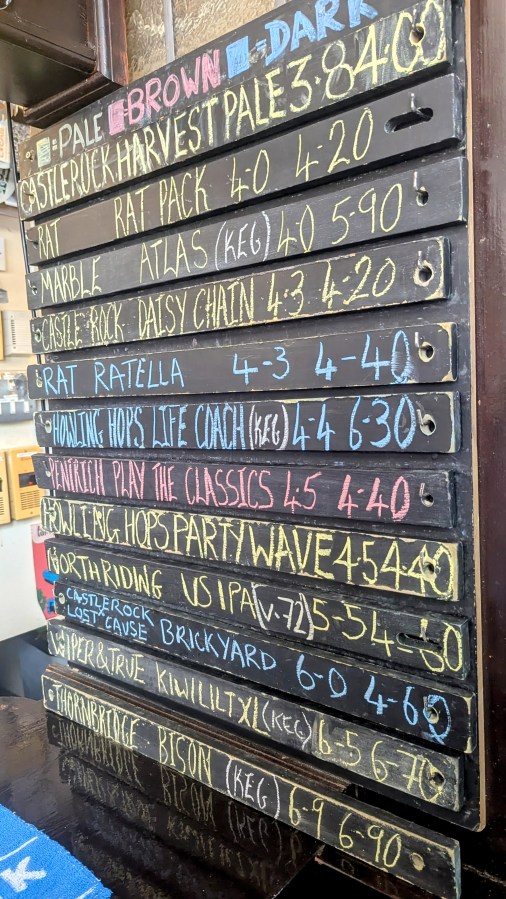 =PALE =BROWN =DARK
CASTLEROCK HARVEST PALE 3.8 4.00
RAT RAT PACK 4-0 4-20
MARBLE ATLAS (KEG) 4.0 5-90
CASTLE ROCK DAISY CHAIN 4.3 4-20
RAT RATELLA 4-3 4-40
HOWLING HOPS LIFE COACH (KEG) 4-4 6-30
PENTRICH PLAY THE CLASSICS 4.5 4-40
HOWLING HOPS PARTY WAVE 4.5 4.40
NORTH RIDING US IPA (V.72) 5-5 4-60
CASTLEROCK
LOST CAUSE BRICKYARD 6-0 4-60
WIPER & TRUE KIWI LILT XL (KEG) 6-5 6-70
THORNBRIDGE BISON (KEG) 6-9 6-90
K